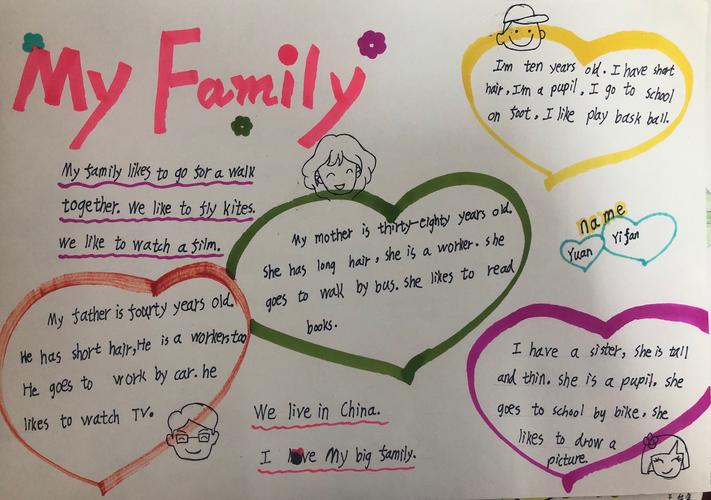 My Family
My family likes to go for a walk
together. We like to fly kites.
We like to watch a film.
I'm ten years old. I have short
hair, I'm a pupil, I go to school
on foot, I like play bask ball.
name
Yuan
Yifan
My mother is thirty-eighty years old.
She has long hair, she is a worker. she
goes to walk by bus. she likes to read
books.
My father is fourty years old.
He has short hair, He is a worker too
He goes to work by car. he
likes to watch TV.
I have a sister, she is tall
and thin. she is a pupil. she
goes to school by bike, she
likes to draw a
picture.
We live in China.
I love My big family.